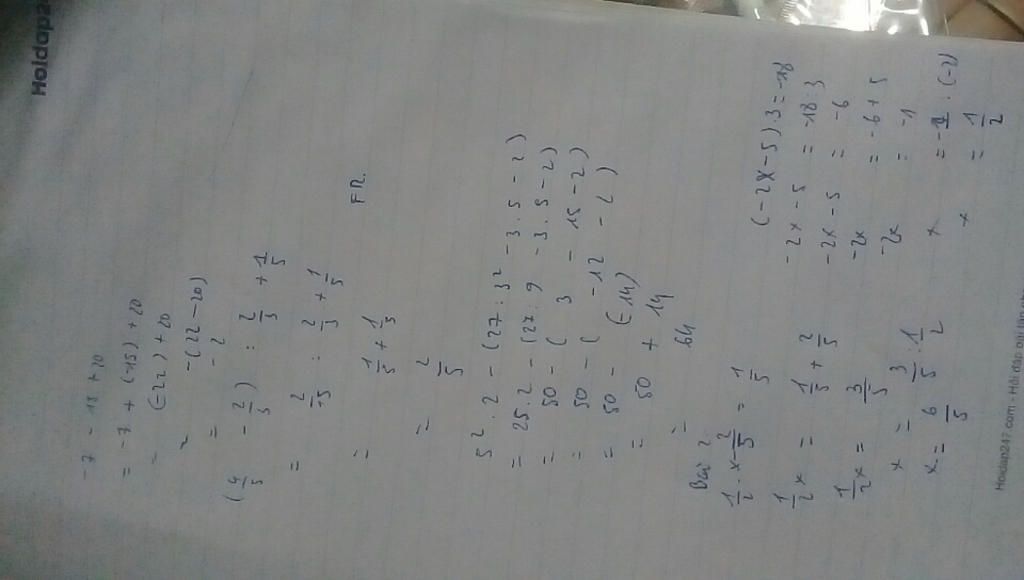 -7 - 18 + 20
= -7 + (-15) + 20
= (-22) + 20
= -(22 - 20)
= - 2
(4/5 - 2/3) : 2/3 + 1/5
= 2/15 : 2/3 + 1/5
= 1/5 + 1/5
= 2/5
FR.
5² . 2 - (27 : 3² - 3 . 5 - 2)
= 25 . 2 - (27 : 9 - 3 . 5 - 2)
= 50 - ( 3 - 15 - 2)
= 50 - ( -12 - 2 )
= 50 - (-14)
= 50 + 14
= 64
Bài 2
1/2 . x - 2/5 = 1/5
1/2 x = 1/5 + 2/5
1/2 x = 3/5
x = 3/5 : 1/2
x = 6/5
(-2x - 5) 3 = -18
-2x - 5 = -18 : 3
-2x - 5 = -6
-2x = -6 + 5
-2x = -1
x = -1 : (-2)
x = 1/2
Hoidap247.com - Hỏi đáp bài tập
Hoidap24